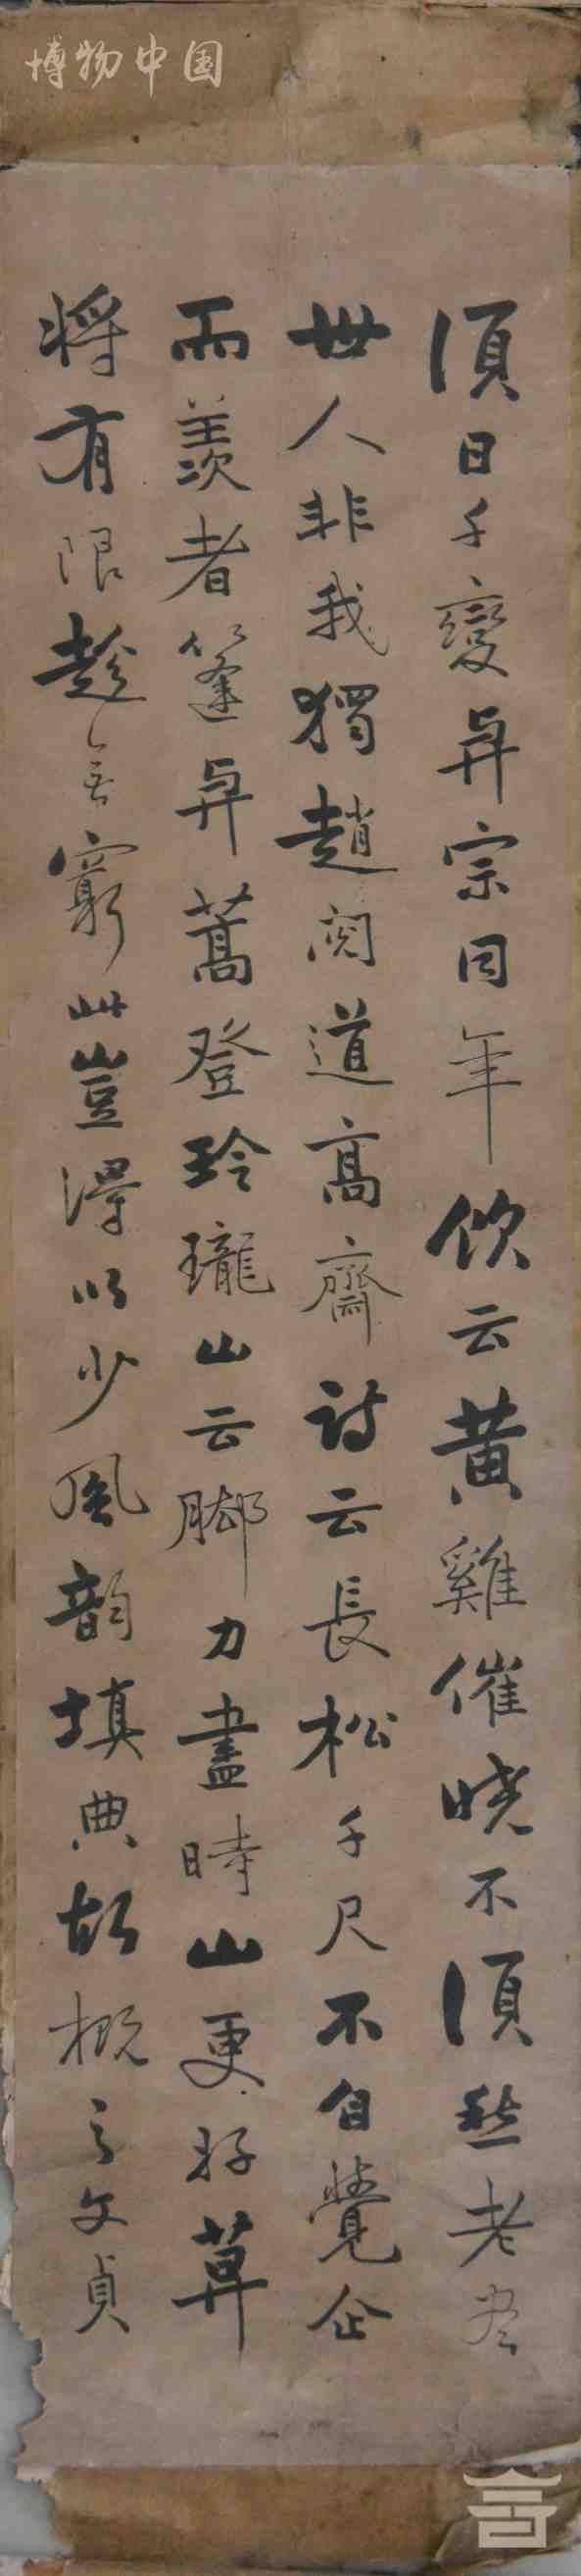 博物中国
須日千變與宗同年飲云黃雞催曉不須愁老盡
世人非我獨趙閱道高齋詩云長松千尺不自覺企
而羨者篷與蒿登玲瓏山云脚力盡時山更好莫
將有限趁無窮此豈得以少風韻填典故概之文貞